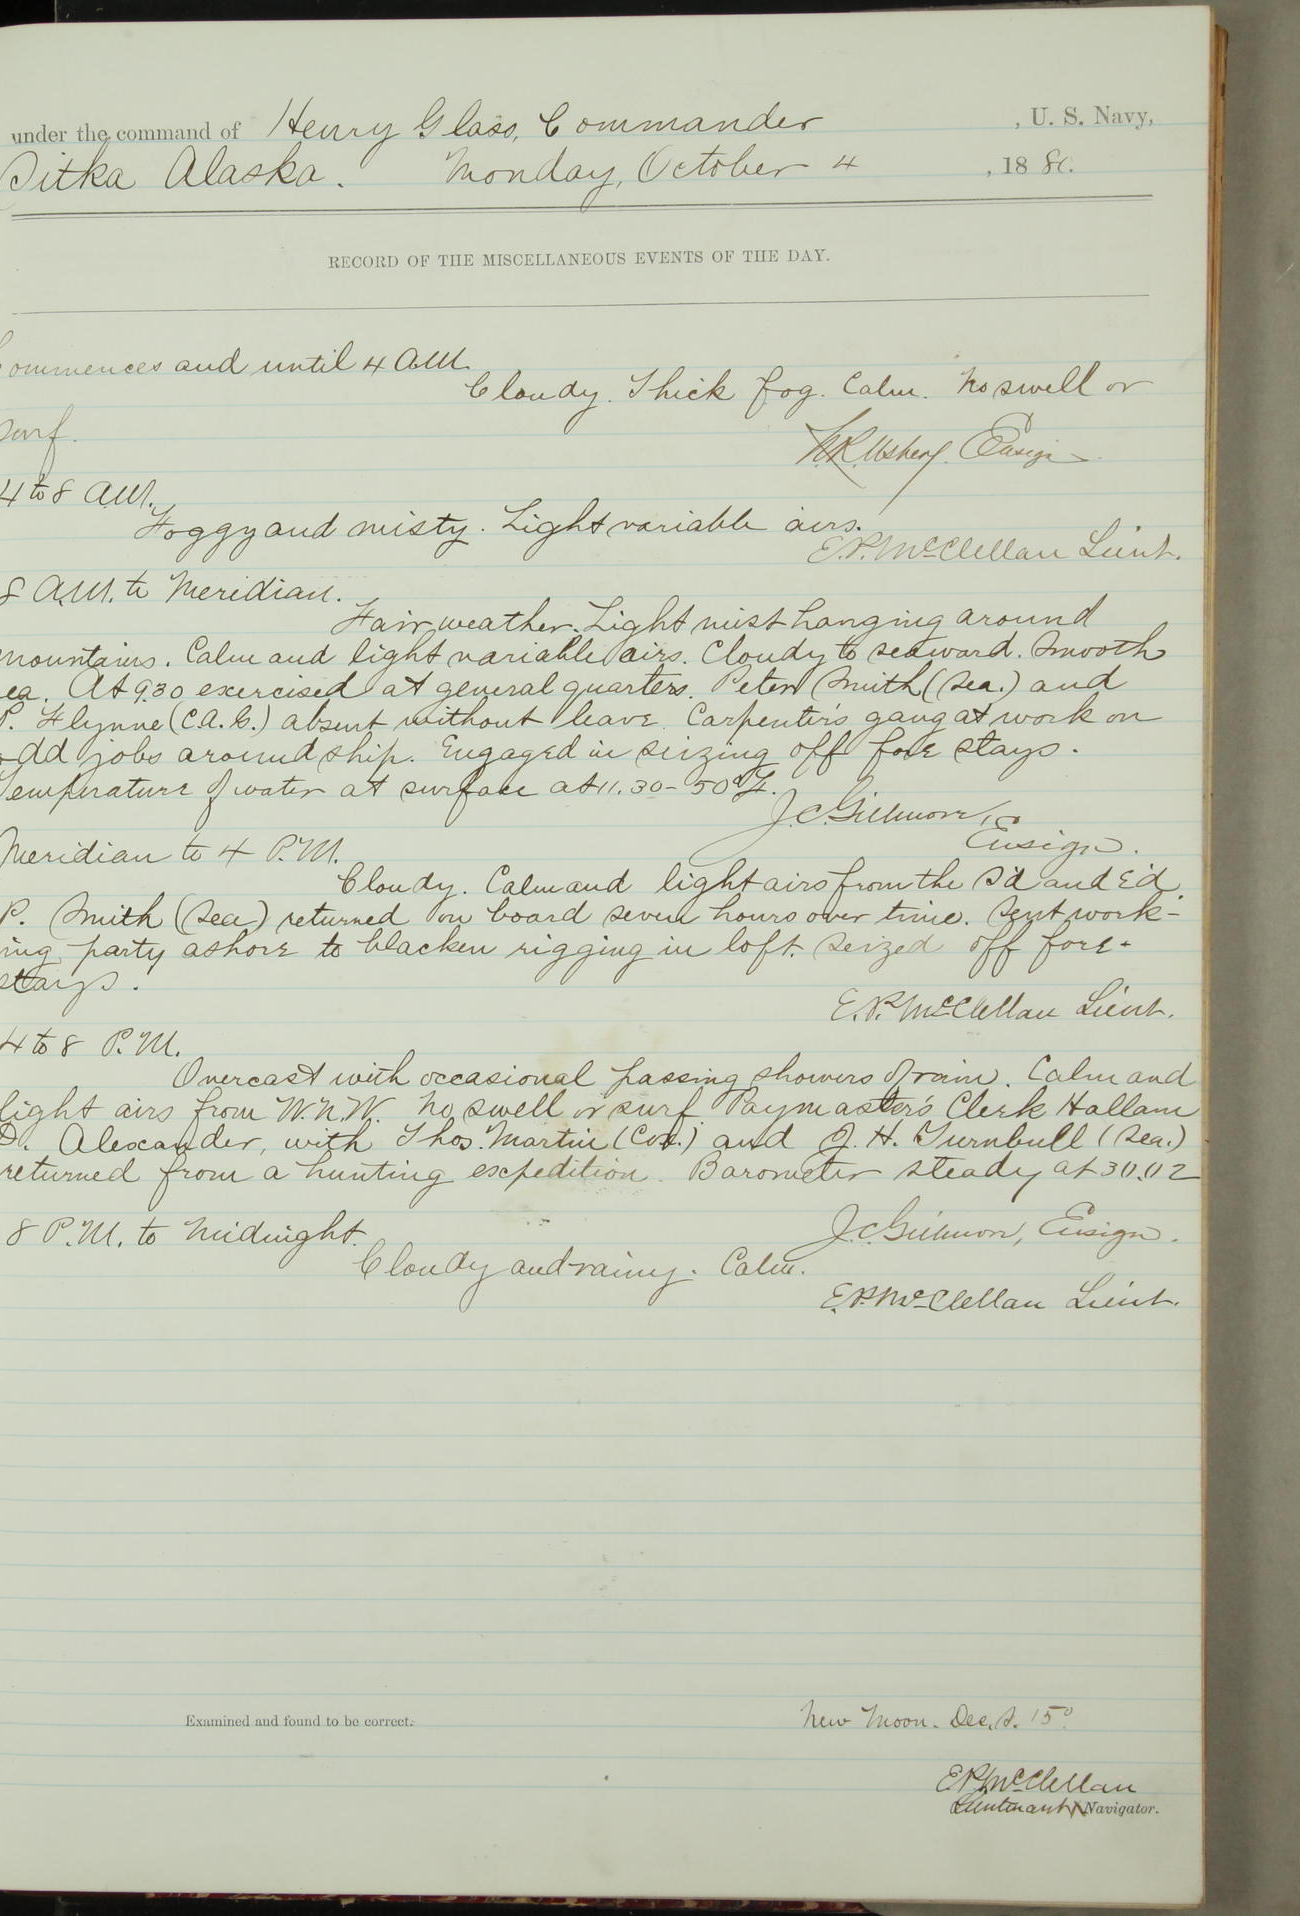 under the command of Henry Glass, Commander , U. S. Navy,
Sitka Alaska. Monday, October 4 , 1880.
RECORD OF THE MISCELLANEOUS EVENTS OF THE DAY.
Commences and until 4 A.M.
Cloudy. Thick fog. Calm. No swell or
surf.
Ensign
4 to 8 A.M.
Foggy and misty. Light variable airs.
E.P. McClellan Lieut.
8 A.M. to Meridian.
Fair weather. Light mist hanging around
mountains. Calm and light variable airs. Cloudy to seaward. Smooth
ea. At 9.30 exercised at general quarters. Peter Smith (Sea.) and
P. Flynne (C.A.G.) absent without leave. Carpenter's gang at work on
odd jobs around ship. Engaged in seizing off fore stays.
Temperature of water at surface at 11.30 - 50° F.
J.C. Gillmore,
Ensign.
Meridian to 4 P.M.
Cloudy. Calm and light airs from the S'd and E'd
P. Smith (Sea) returned on board seven hours over time. Sent work-
ing party ashore to blacken rigging in loft. Seized off fore-
stays.
E.P. McClellan Lieut.
4 to 8 P.M.
Overcast with occasional passing showers of rain. Calm and
light airs from W.N.W. No swell or surf. Paymaster's Clerk Hallam
D. Alexander, with Thos. Martin (Cox.) and J. H. Turnbull (Sea.)
returned from a hunting expedition. Barometer steady at 30.02
J.C. Gillmore, Ensign.
8 P.M. to Midnight.
Cloudy and rainy. Calm.
E.P. McClellan Lieut.
Examined and found to be correct.
New Moon. Dec. S. 15°
E.P. McClellan
Lieutenant & Navigator.